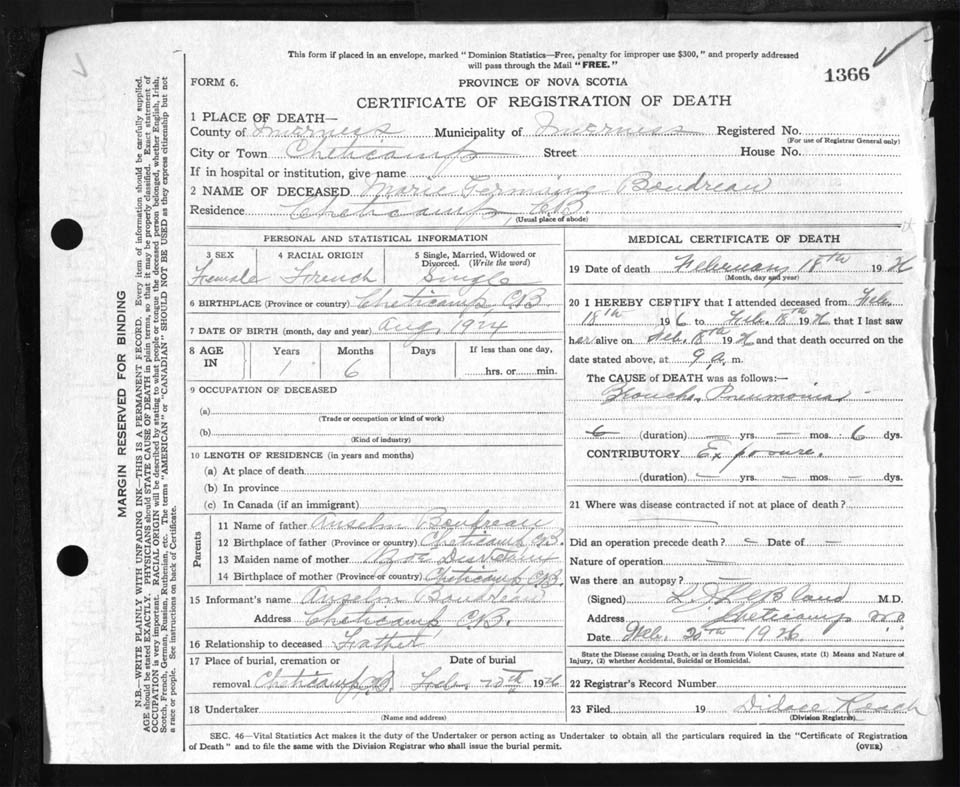 This form if placed in an envelope, marked "Dominion Statistics—Free, penalty for improper use $300," and properly addressed
will pass through the Mail "FREE."
1366
FORM 6.
PROVINCE OF NOVA SCOTIA
CERTIFICATE OF REGISTRATION OF DEATH
1 PLACE OF DEATH—
County of Inverness Municipality of Inverness Registered No.
(For use of Registrar General only)
City or Town Cheticamp Street House No.
If in hospital or institution, give name
2 NAME OF DECEASED Marie Germaine Boudreau
Residence Cheticamp, C.B.
(Usual place of abode)
PERSONAL AND STATISTICAL INFORMATION
3 SEX 4 RACIAL ORIGIN 5 Single, Married, Widowed or
Divorced. (Write the word)
Female French Single
6 BIRTHPLACE (Province or country) Cheticamp, C.B.
7 DATE OF BIRTH (month, day and year) Aug 1924
8 AGE IN Years Months Days If less than one day,
1 6 hrs. or min.
9 OCCUPATION OF DECEASED
(a)
(Trade or occupation or kind of work)
(b)
(Kind of industry)
10 LENGTH OF RESIDENCE (in years and months)
(a) At place of death
(b) In province
(c) In Canada (if an immigrant)
Parents
11 Name of father Anselm Boudreau
12 Birthplace of father (Province or country) Cheticamp C.B.
13 Maiden name of mother
14 Birthplace of mother (Province or country) Cheticamp C.B.
15 Informant's name Anselm Boudreau
Address Cheticamp C.B.
16 Relationship to deceased Father
17 Place of burial, cremation or Date of burial
removal Cheticamp, C.B. Feb. 20th 1926
18 Undertaker
(Name and address)
MEDICAL CERTIFICATE OF DEATH
19 Date of death February 18th 1926
(Month, day and year)
20 I HEREBY CERTIFY that I attended deceased from Feb.
18th 1926 to Feb. 18th 1926, that I last saw
her alive on Feb. 18th 1926 and that death occurred on the
date stated above, at 9 a. m.
The CAUSE of DEATH was as follows:—
Broncho Pneumonia
6 (duration) — yrs. — mos. 6 dys.
CONTRIBUTORY Exposure.
(duration) — yrs. — mos. — dys.
21 Where was disease contracted if not at place of death?
Did an operation precede death? — Date of —
Nature of operation —
Was there an autopsy? —
(Signed) LeBlanc M.D.
Address Cheticamp
Date Feb. 20th 1926
State the Disease causing Death, or in death from Violent Causes, state (1) Means and Nature of
Injury, (2) whether Accidental, Suicidal or Homicidal.
22 Registrar's Record Number
23 Filed 19 Didace
(Division Registrar)
SEC. 46—Vital Statistics Act makes it the duty of the Undertaker or person acting as Undertaker to obtain all the particulars required in the "Certificate of Registration
of Death" and to file the same with the Division Registrar who shall issue the burial permit.
(OVER)
MARGIN RESERVED FOR BINDING
N.B.—WRITE PLAINLY WITH UNFADING INK—THIS IS A PERMANENT RECORD. Every item of information should be carefully supplied.
AGE should be stated EXACTLY. PHYSICIANS should STATE CAUSE OF DEATH in plain terms, so that it may be properly classified. Exact statement of
OCCUPATION is very important. RACIAL ORIGIN will be described by stating to what people or tongue the deceased person belonged, whether English, Irish,
Scotch, French, German, Russian, Ruthenian, etc. The terms "AMERICAN" or "CANADIAN" SHOULD NOT BE USED as they express citizenship but not
a race or people. See instructions on back of Certificate.